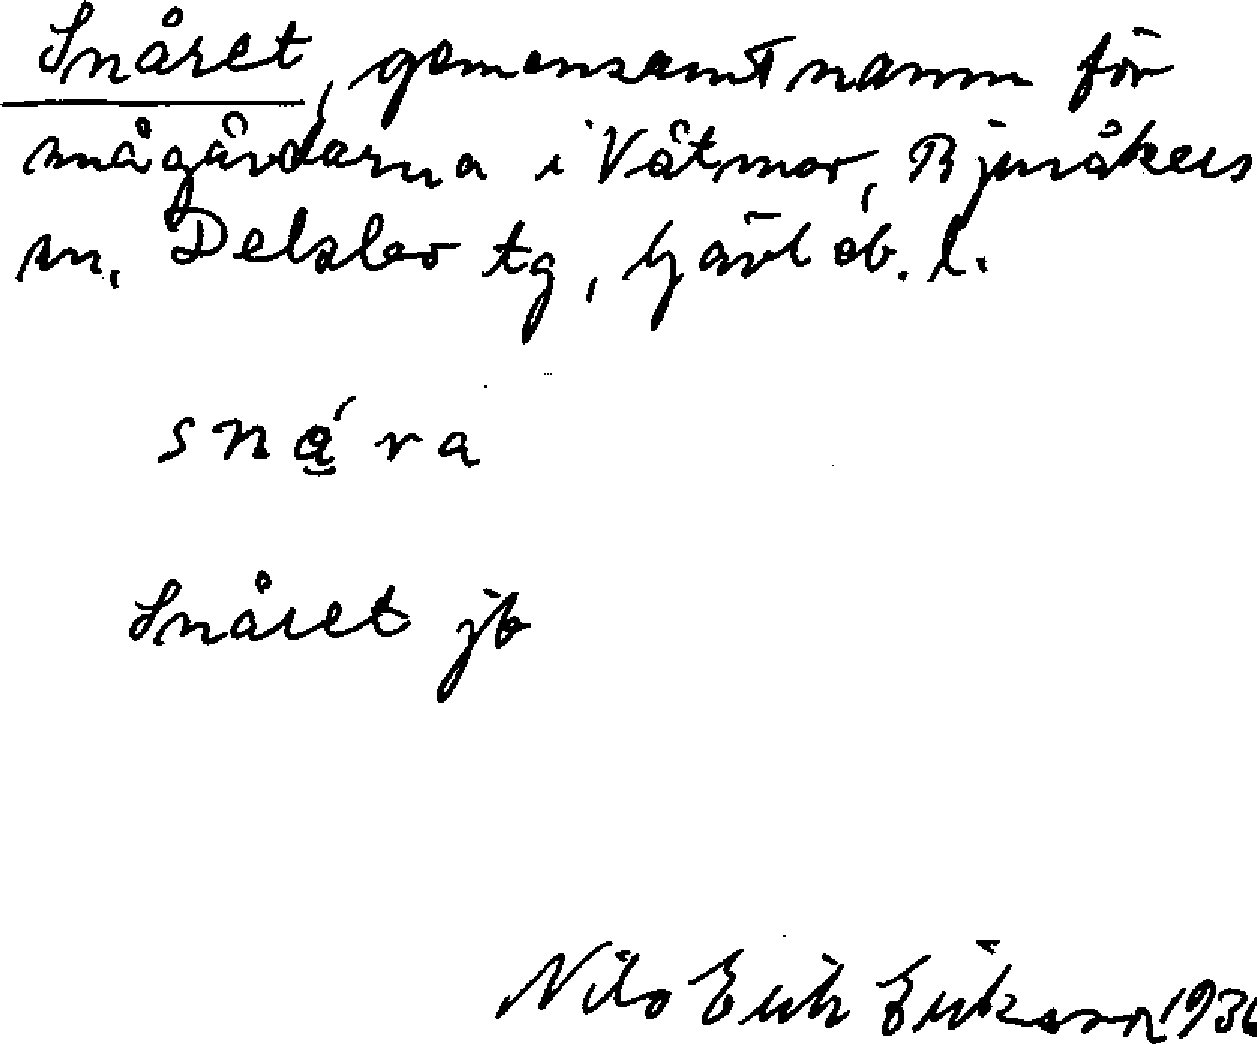 Snåret, gemensamt namn för
smågårdarna i Våtmor, Bjuråkers
sn. Delsbo tg, Gävleb. l.
snåra
Snåret jb
Nils Erik Eriksson 193